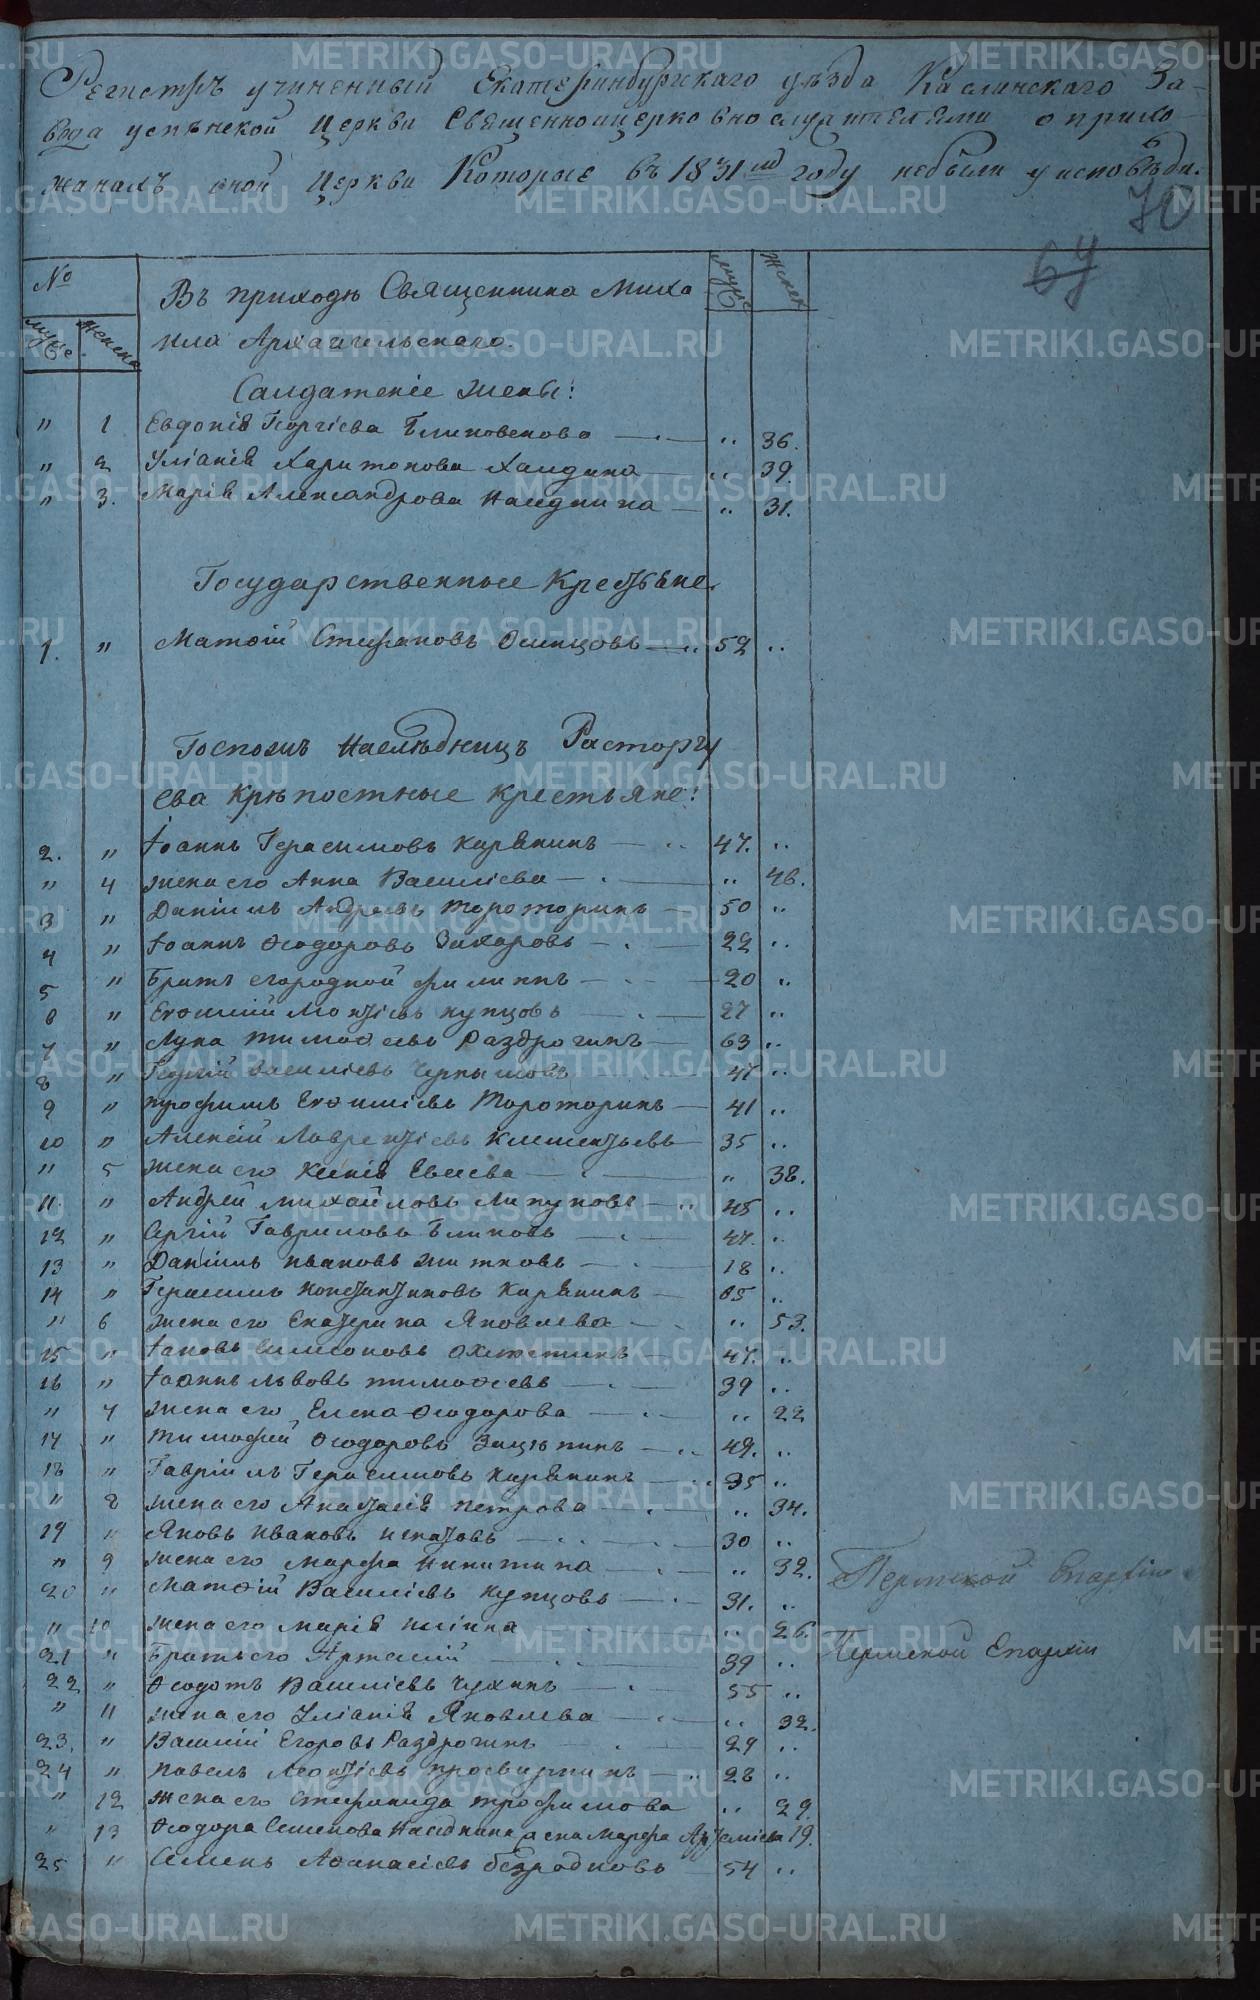 Регистръ учиненный Екатеринбургскаго уѣзда Каслинскаго За-
вода успѣнской Церкви Священноицерковнослужителями о прихо
жанахъ оной Церкви Которые въ 1831мъ году небыли уисповѣди.
70
64
№ муже. женска
Въ приходѣ Священника Миха муже женск
ила Архангельскаго.
Салдатскіе жены:
" 1 Евдокія Георгіева Блиновскова " 36.
" 2 Уліанія Харитонова Халдина " 39.
" 3. Марія Александрова " 31.
Государственные Крестьяне.
1. " Матѳій Стефановъ Осинцовъ 52 "
Госпожъ Наслѣдницъ Расторгу
ева крѣпостные крестьяне:
2. " Іоаннъ Герасимовъ Карякинъ 47. "
" 4 жена его Анна Василіева " 46.
3 " Даніилъ Андреевъ Тороторинъ 50 "
4 " Іоаннъ Ѳеодоровъ Захаровъ 22 "
5 " Братъ егородной филиппъ 20 "
6 " Евѳимій Леонтіевъ купцовъ 27 "
7 " Лука тимоѳеевъ Раздрогинъ 63 "
8 " Георгій василіевъ Чернышовъ 47 "
9 " трофимъ Евѳиміевъ Тороторинъ 41 "
10 " Алексій Лаврентіевъ Климентьевъ 35 "
" 5 жена его Ксенія Евсеева " 38.
11 " Андрей михайловъ Липуновъ 45 "
12 " Сергій Гавриловъ Блиновъ 47. "
13 " Даніилъ ивановъ житковъ 18 "
14 " Герасимъ Константиновъ Карякинъ 65 "
" 6 жена его Екатерина Яковлева " 53.
15 " Іаковъ симеоновъ 47. "
16 " Іоаннъ львовъ тимоѳеевъ 39 "
" 7 жена его Елена Ѳеодорова " 22
17 " тимофей Ѳеодоровъ Зацепинъ 49. "
18 " Гавріилъ Герасимовъ Карякинъ 35 "
" 8 жена его Анастасія петрова " 34.
19 " Яковъ ивановъ игнатовъ 30 "
" 9 жена его марфа никитина " 32. Пермской Епархіи
20 " Матѳій Василіевъ купцовъ 31. "
" 10 жена его марія ильина " 26. Пермской Епархіи
21 " Братъ его Артемій 39 "
22 " Ѳеодотъ Василіевъ Чухинъ 55 "
" 11 жена его Уліанія Яковлева " 32.
23. " Василій Егоровъ Раздрогинъ 29 "
24 " павелъ Леонтіевъ просвирнинъ 28 "
" 12 жена его стефанида трофимова " 29.
" 13 Ѳеодора Семенова марфа Артеміева 19.
25 " Семенъ Аѳанасіевъ безродновъ 54 "